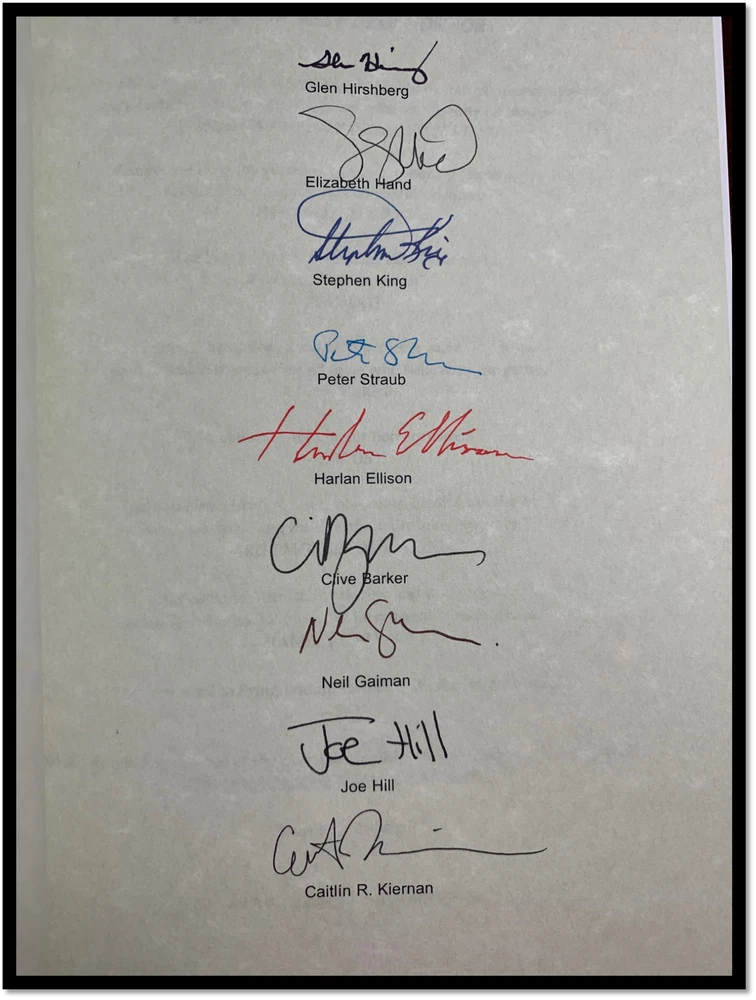 Glen Hirshberg
Elizabeth Hand
Stephen King
Stephen King
Peter Straub
Harlan Ellison
Harlan Ellison
Clive Barker
Neil Gaiman
Joe Hill
Joe Hill
Caitlín R. Kiernan